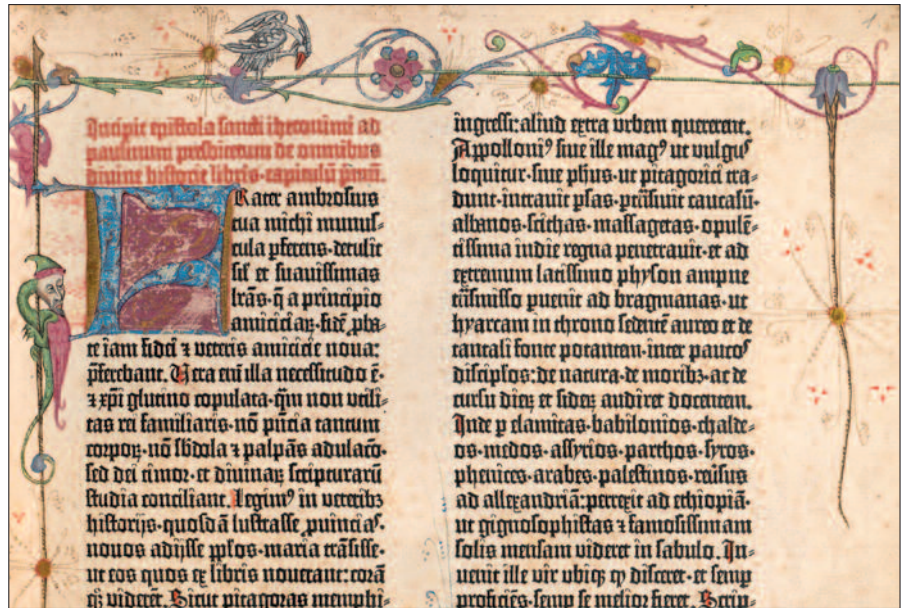 1
Incipit epistola sancti iheronimi ad
paulinum presbiterum de omnibus
divine historie libris·capitulū prīmū.
Frater ambrosius
tua michi munus-
cula ꝑferens·detulit
sīl et suavissimas
lrās·q̄ a principio
amiciciaꝝ·fidē ꝓba-
te iam fidei ⁊ veteris amicicie nova:
p̄ferebant. Vera enī illa necessitudo ē·
⁊ xpī glutino copulata·qm̄ non utili-
tas rei familiaris·nō pn̄cia tantum
corpoꝝ·nō sbdola ⁊ palpās adulacō·
sed dei timor·et divinaꝝ scripturarū
studia conciliant. Legimꝰ in veteribꝫ
historijs·quosdā lustrasse ꝓvincias·
novos adijsse pplos·maria trāsisse·
ut eos quos ex libris noverant:corā
qꝫ viderēt. Sicut pitagoras memphi-
ingressi:aliud extra urbem quererent.
Appollonīꝰ sive ille magꝰ ut vulgus
loquitur·sive ph̄us·ut pitagorici tra-
dunt·intravit ꝑsas·ꝑtūsivit caucasū·
albanos·scithas·massagetas·opulē-
tissima indie regna penetravit·et ad
extremum latissimo physon ampne
trāsmisso ꝑvenit ad bragmanas·ut
hyarcam in throno sedentē aureo et de
tantali fonte potantem·inter paucos
discipulos:de natura·de moribꝫ·ac de
cursu dieꝝ et sideꝝ audiret docentem.
Inde ꝑ elamitas·babilonios·chalde-
os·medos·assyrios·parthos·syros·
phenices·arabes·palestinos·revsus
ad allexandriā:perrexit ad ethiopiā·
ut gignosophistas ⁊ famosissimam
solis mensam videret in sabulo. In-
venit ille vir ubiqꝫ qꝫ disceret·et semꝑ
proficiēs·semꝑ se melior fieret. Scrip-